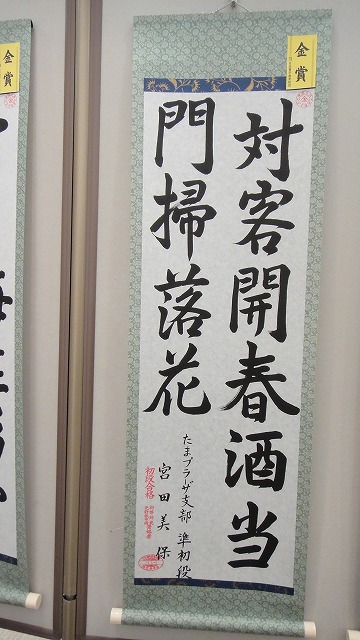 金賞
対客開春酒当
門掃落花
たまプラーザ支部 準初段
宮田美保
初段合格
金賞